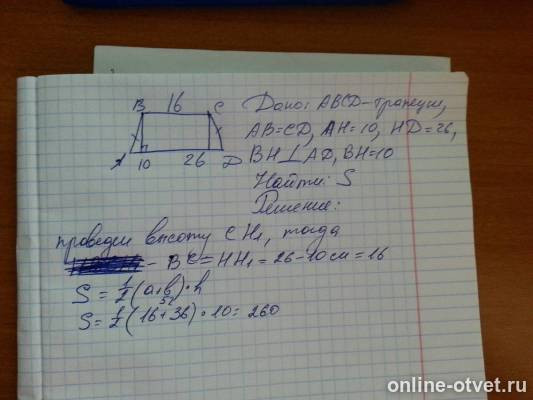 B 16 C
A 10 26 D
Дано: ABCD-трапеция,
AB=CD, AH=10, HD=26,
BH⊥AD, BH=10
Найти: S
Решение:
проведем высоту CH₁, тогда
- BC=HH₁=26-10см=16
S=½(a+b)·h
52
S=½(16+36)·10=260
online-otvet.ru